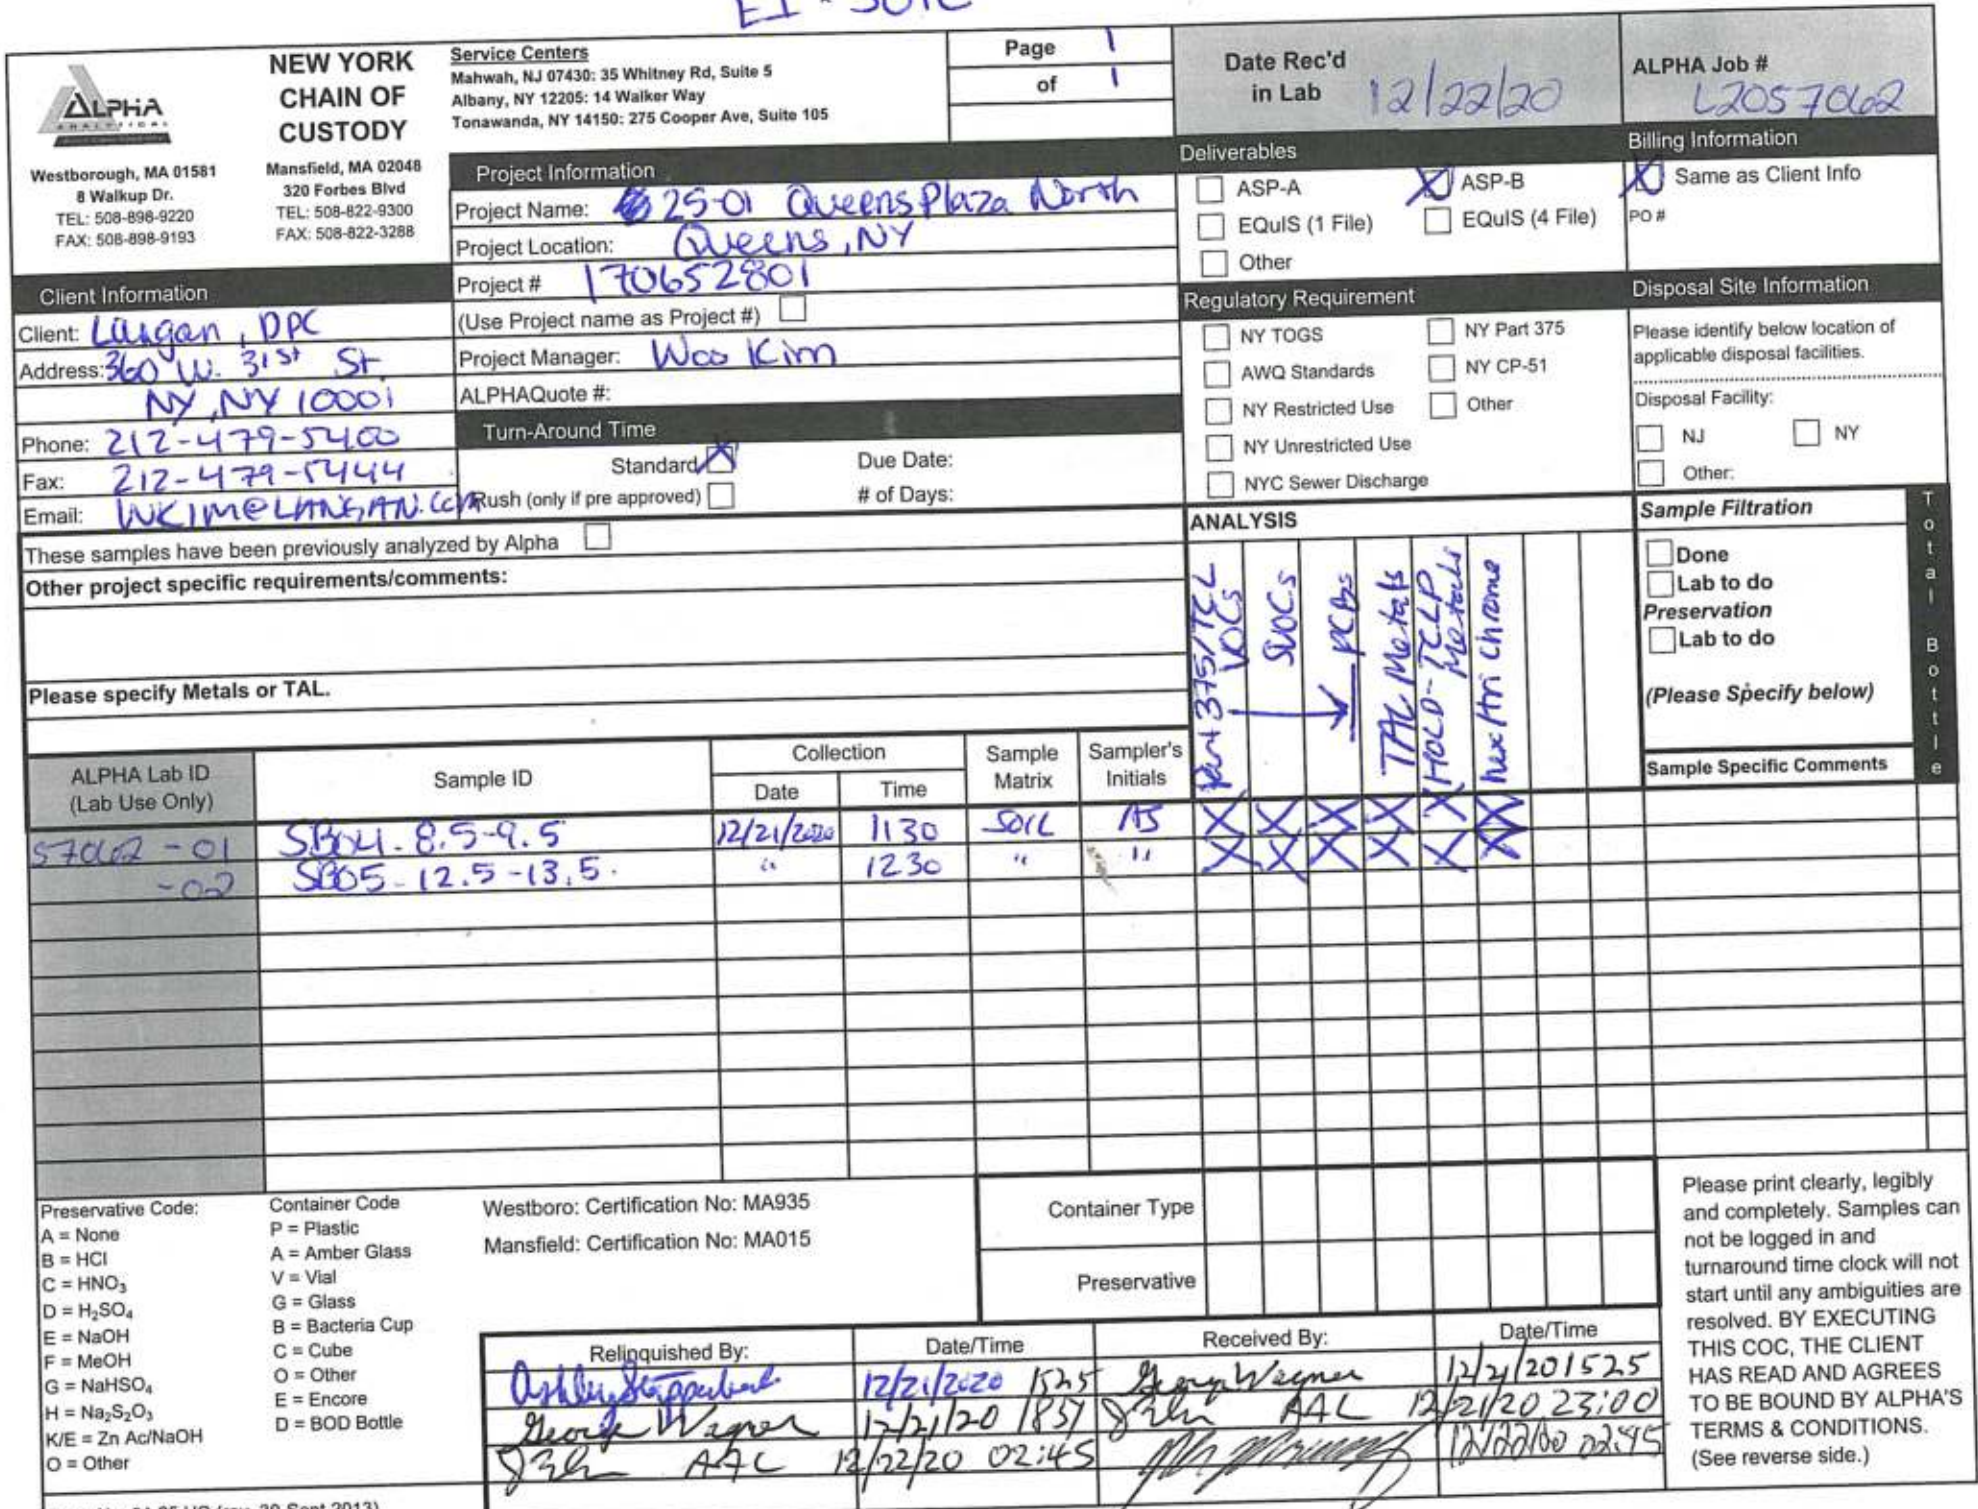 NEW YORK
CHAIN OF
CUSTODY
ALPHA
ANALYTICAL
Westborough, MA 01581
8 Walkup Dr.
TEL: 508-898-9220
FAX: 508-898-9193
Mansfield, MA 02048
320 Forbes Blvd
TEL: 508-822-9300
FAX: 508-822-3288
Service Centers
Mahwah, NJ 07430: 35 Whitney Rd, Suite 5
Albany, NY 12205: 14 Walker Way
Tonawanda, NY 14150: 275 Cooper Ave, Suite 105
Page 1
of 1
Date Rec'd
in Lab 12/22/20
ALPHA Job #
L2057062
Project Information
Project Name: 25-01 Queens Plaza North
Project Location: Queens, NY
Project # 170652801
(Use Project name as Project #)
Project Manager: Woo Kim
ALPHAQuote #:
Turn-Around Time
Standard Due Date:
Rush (only if pre approved) # of Days:
Client Information
Client: Langan, DPC
Address: 360 W. 31st St
NY, NY 10001
Phone: 212-479-5400
Fax: 212-479-5444
Email: WKIM@LANGAN.com
Deliverables
ASP-A ASP-B
EQuIS (1 File) EQuIS (4 File)
Other
Billing Information
Same as Client Info
PO #
Regulatory Requirement
NY TOGS NY Part 375
AWQ Standards NY CP-51
NY Restricted Use Other
NY Unrestricted Use
NYC Sewer Discharge
Disposal Site Information
Please identify below location of
applicable disposal facilities.
Disposal Facility:
NJ NY
Other:
These samples have been previously analyzed by Alpha
Other project specific requirements/comments:
Please specify Metals or TAL.
ANALYSIS
Part 375/TCL
VOCs
SVOCs
PCBs
TAL Metals
HOLD - TCLP
Metals
hex/tri chrome
Sample Filtration
Done
Lab to do
Preservation
Lab to do
(Please Specify below)
Total Bottle
ALPHA Lab ID
(Lab Use Only)
Sample ID
Collection
Date Time
Sample
Matrix
Sampler's
Initials
Sample Specific Comments
57062-01 SB04-8.5-9.5 12/21/2020 1130 SOIL AS X X X X X X
-02 SB05-12.5-13.5. " 1230 " " X X X X X X
Preservative Code:
A = None
B = HCl
C = HNO3
D = H2SO4
E = NaOH
F = MeOH
G = NaHSO4
H = Na2S2O3
K/E = Zn Ac/NaOH
O = Other
Container Code
P = Plastic
A = Amber Glass
V = Vial
G = Glass
B = Bacteria Cup
C = Cube
O = Other
E = Encore
D = BOD Bottle
Westboro: Certification No: MA935
Mansfield: Certification No: MA015
Container Type
Preservative
Relinquished By: Date/Time Received By: Date/Time
Ashley 12/21/2020 1525 George Wagner 12/21/20 1525
George Wagner 12/21/20 1857 AAL 12/21/20 23:00
AAL 12/22/20 02:45 02:45
Please print clearly, legibly
and completely. Samples can
not be logged in and
turnaround time clock will not
start until any ambiguities are
resolved. BY EXECUTING
THIS COC, THE CLIENT
HAS READ AND AGREES
TO BE BOUND BY ALPHA'S
TERMS & CONDITIONS.
(See reverse side.)